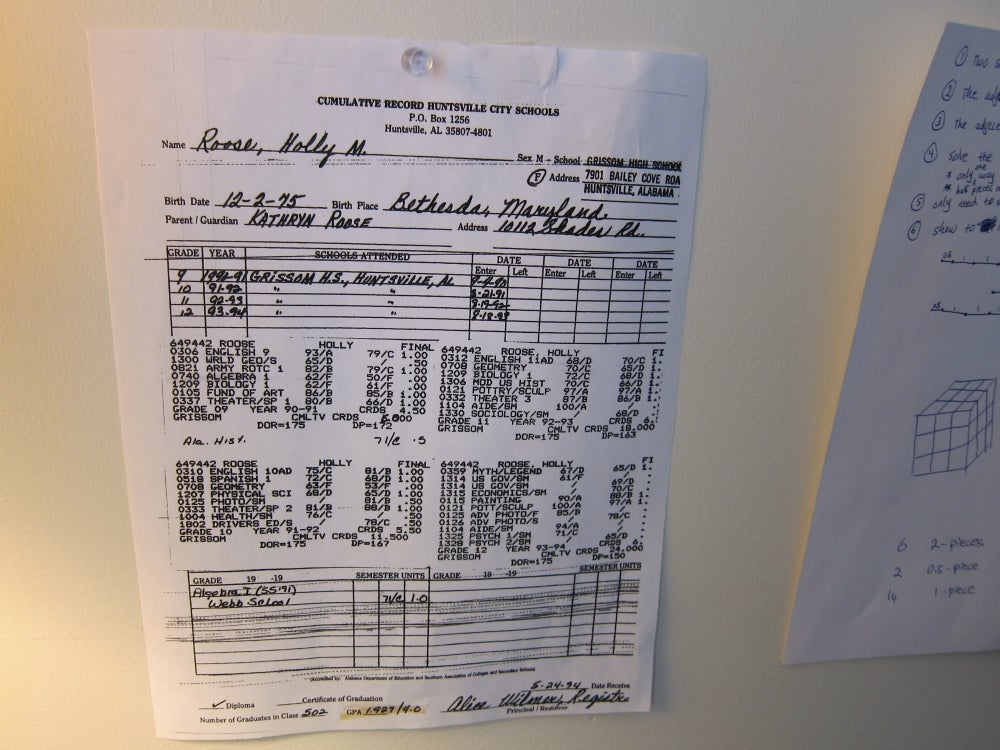 CUMULATIVE RECORD HUNTSVILLE CITY SCHOOLS
P.O. Box 1256
Huntsville, AL 35807-4801
Name Roose, Holly M. Sex M - School GRISSOM HIGH SCHOOL
F Address 7901 BAILEY COVE ROA
HUNTSVILLE, ALABAMA
Birth Date 12-2-75 Birth Place Bethesda, Maryland
Parent / Guardian KATHRYN ROOSE Address 10112 Shades Rd.
GRADE YEAR SCHOOLS ATTENDED DATE DATE DATE
Enter Left Enter Left Enter Left
9 1990-91 GRISSOM H.S., HUNTSVILLE, AL
10 91-92 " " 8-21-91
11 92-93 " " 8-19-92
12 93-94 " " 8-18-93
649442 ROOSE HOLLY FINAL
0306 ENGLISH 9 93/A 79/C 1.00
1300 WRLD GEO/S 65/D / .50
0821 ARMY ROTC 1 82/B 79/C 1.00
0740 ALGEBRA 1 62/F 50/F .00
1209 BIOLOGY 1 62/F 61/F .00
0105 FUND OF ART 86/B 85/B 1.00
0337 THEATER/SP 1 80/B 66/D 1.00
GRADE 09 YEAR 90-91 CRDS 4.50
GRISSOM CMLTV CRDS 5.000
DOR=175 DP=172
Ala. Hist. 71/C .5
649442 ROOSE, HOLLY FI
0312 ENGLISH 11AD 68/D 70/C 1.
0708 GEOMETRY 70/C 65/D 1.
1209 BIOLOGY 1 72/C 68/D 1.
1306 MOD US HIST 70/C 66/D 1.
0121 POTTRY/SCULP 97/A 97/A 1.
0332 THEATER 3 87/B 86/B 1.
1104 AIDE/SM 100/A / .
1330 SOCIOLOGY/SM / 68/D .
GRADE 11 YEAR 92-93 CRDS 6.
GRISSOM CMLTV CRDS 18.000
DOR=175 DP=163
649442 ROOSE HOLLY FINAL
0310 ENGLISH 10AD 75/C 81/B 1.00
0518 SPANISH 1 72/C 68/D 1.00
0708 GEOMETRY 63/F 53/F .00
1207 PHYSICAL SCI 68/D 65/D 1.00
0125 PHOTO/SM / 81/B .50
0333 THEATER/SP 2 81/B 88/B 1.00
1004 HEALTH/SM 76/C / .50
1802 DRIVERS ED/S / 78/C .50
GRADE 10 YEAR 91-92 CRDS 5.50
GRISSOM CMLTV CRDS 11.500
DOR=175 DP=167
649442 ROOSE, HOLLY FI
0359 MYTH/LEGEND 67/D 65/D 1.
1314 US GOV/SM 61/F / .
1314 US GOV/SM / 69/D .
1315 ECONOMICS/SM / 70/C .
0115 PAINTING 90/A 88/B 1.
0121 POTT/SCULP 100/A 97/A 1.
0125 ADV PHOTO/F 85/B / .
0126 ADV PHOTO/S / 78/C .
1104 AIDE/SM 94/A / .
1325 PSYCH 1/SM 71/C / .
1328 PSYCH 2/SM / 65/D .
GRADE 12 YEAR 93-94 CRDS 6.
GRISSOM CMLTV CRDS 24.000
DOR=175 DP=150
GRADE 19 -19 SEMESTER UNITS GRADE 19 -19 SEMESTER UNITS
Algebra I (SS'91)
Webb School 71/C 1.0
(Accredited by: Alabama Department of Education and Southern Association of Colleges and Secondary Schools)
5-24-94 Date Receive
✓ Diploma Certificate of Graduation Alice Wilmer, Registra
Number of Graduates in Class 502 GPA 1.927/4.0 Principal / Registrar
① Two s
② The adj
③ The adjece
④ solve the
* only one way
** half pieces
⑤ only need to s
⑥ show to
0.5
0.5
6 2-pieces
2 0.5-piece
14 1-piece